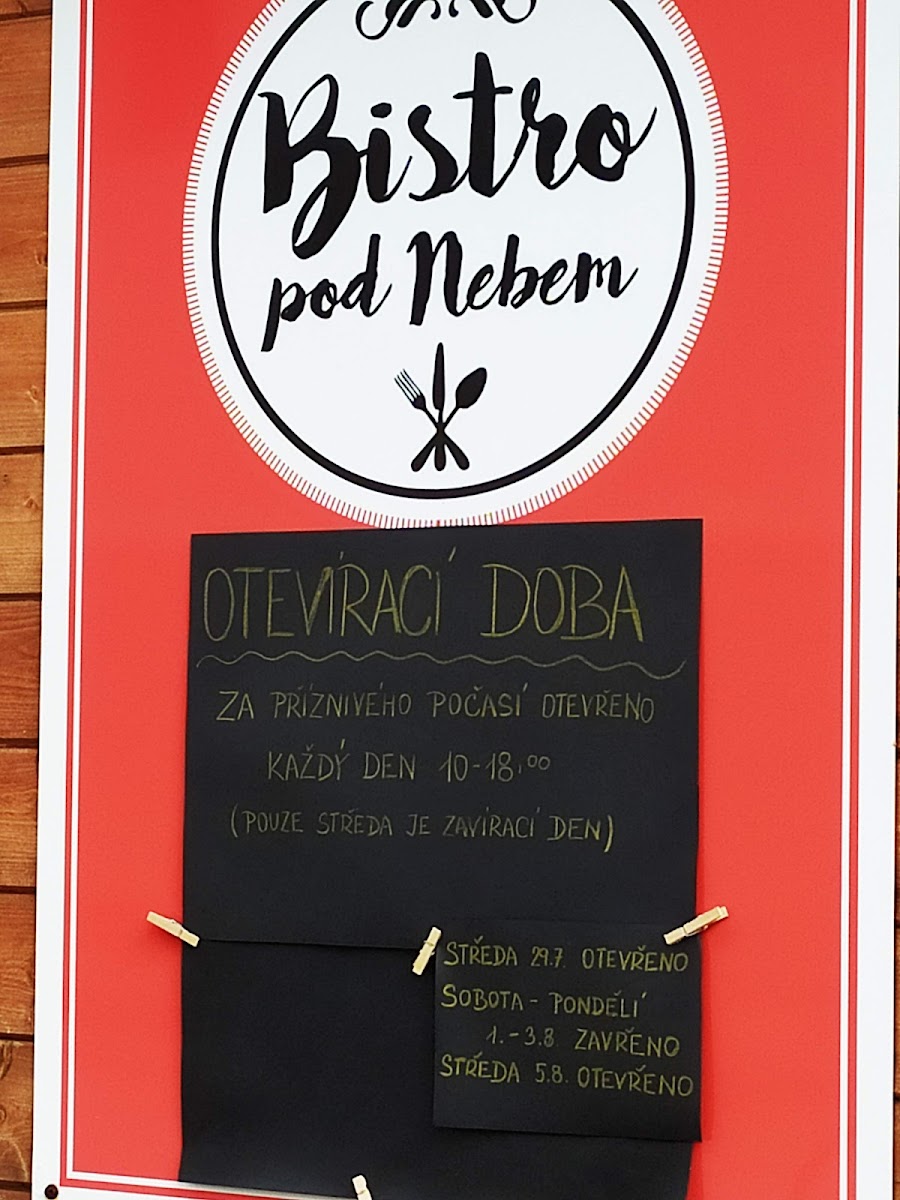 Bistro
pod Nebem
OTEVÍRACÍ DOBA
ZA PŘÍZNIVÉHO POČASÍ OTEVŘENO
KAŽDÝ DEN 10-18.00
(POUZE STŘEDA JE ZAVÍRACÍ DEN)
STŘEDA 29.7. OTEVŘENO
SOBOTA - PONDĚLÍ
1.-3.8. ZAVŘENO
STŘEDA 5.8. OTEVŘENO